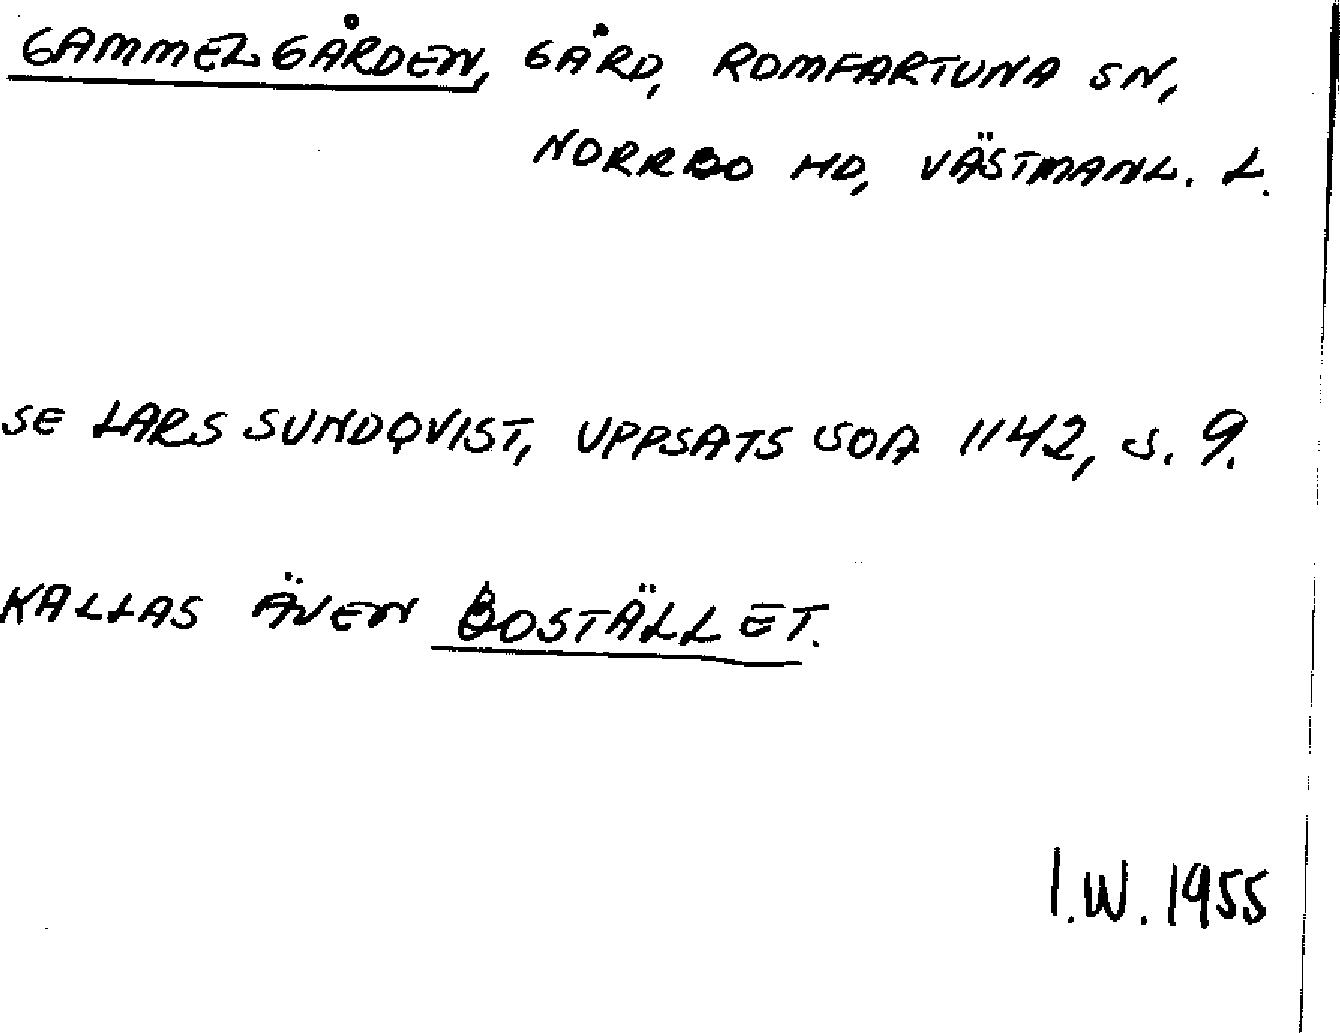 GAMMELGÅRDEN, GÅRD, ROMFARTUNA SN,
NORRBO HD, VÄSTMANL. L.
SE LARS SUNDQVIST, UPPSATS SOA 1142, S. 9.
KALLAS ÄVEN BOSTÄLLET.
I.W. 1955